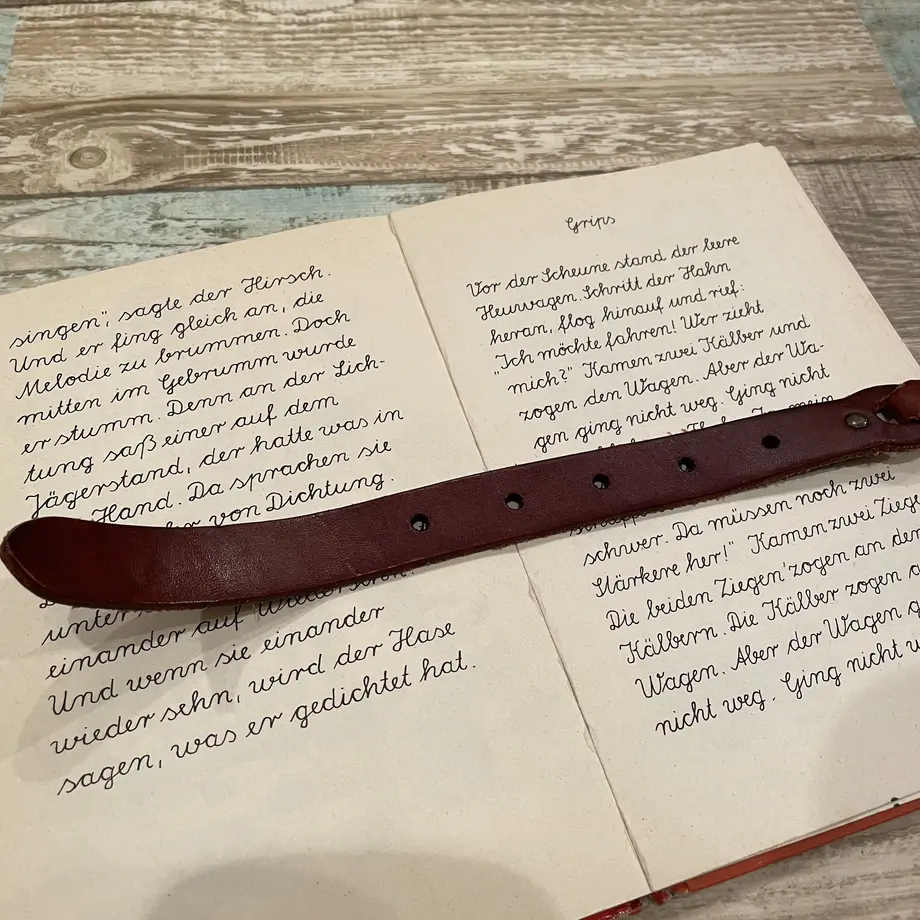 singen", sagte der Hirsch.
Und er fing gleich an, die
Melodie zu brummen. Doch
mitten im Gebrumm wurde
er stumm. Denn an der Lich-
tung saß einer auf dem
Jägerstand, der hatte was in
Hand. Da sprachen sie
von Dichtung.
einander auf
Und wenn sie einander
wieder sehn, wird der Hase
sagen, was er gedichtet hat.
Grips
Vor der Scheune stand der leere
Heuwagen. Schritt der Hahn
heran, flog hinauf und rief:
"Ich möchte fahren! Wer zieht
mich?" Kamen zwei Kälber und
zogen den Wagen. Aber der Wa-
gen ging nicht weg. Ging nicht
schwer. Da müssen noch zwei
Stärkere her!" Kamen zwei
Die beiden Ziegen zogen an den
Kälbern. Die Kälber zogen
Wagen. Aber der Wagen
nicht weg. Ging nicht